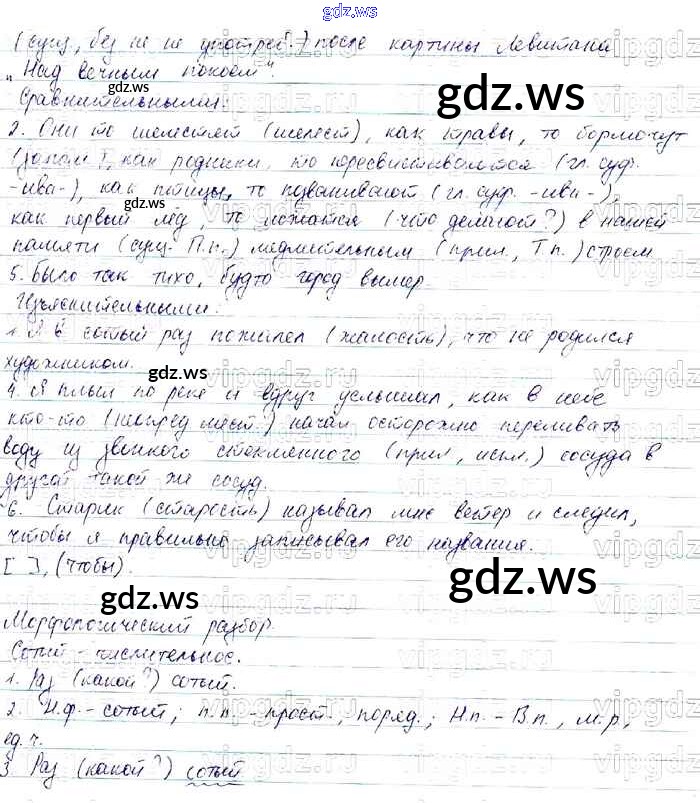 gdz.ws
(сущ., без не не употреб.) после картины Левитана
„Над вечным покоем".
Сравнительными:
2. Они то шелестят (шелест), как травы, то бормочут
как родники, то пересвистываются (гл. суф.
-ива-), как птицы, то позванивают (гл. суф. -ива-),
как первый лёд, то ложатся (что делают?) в нашей
памяти (сущ. П.п.) медлительным (прил., Т.п.) строем
5. Было так тихо, будто город вымер.
Изъяснительными:
1. Я в сотый раз пожалел (жалость), что не родился
художником.
4. Я плыл по реке и вдруг услышал, как в небе
кто-то (неопред. мест.) начал осторожно переливать
воду из звонкого стеклянного (прил., искл.) сосуда в
другой такой же сосуд.
6. Старик (старость) называл мне ветер и следил,
чтобы я правильно записывал его названия.
[ ], (чтобы).
gdz.ws
Морфологический разбор
Сотый - числительное.
1. Раз (какой?) сотый.
2. Н.ф. - сотый; п.п. - прост., поряд.; Н.п. - В.п., м.р.,
ед.ч.
3. Раз (какой?) сотый
gdz.ws